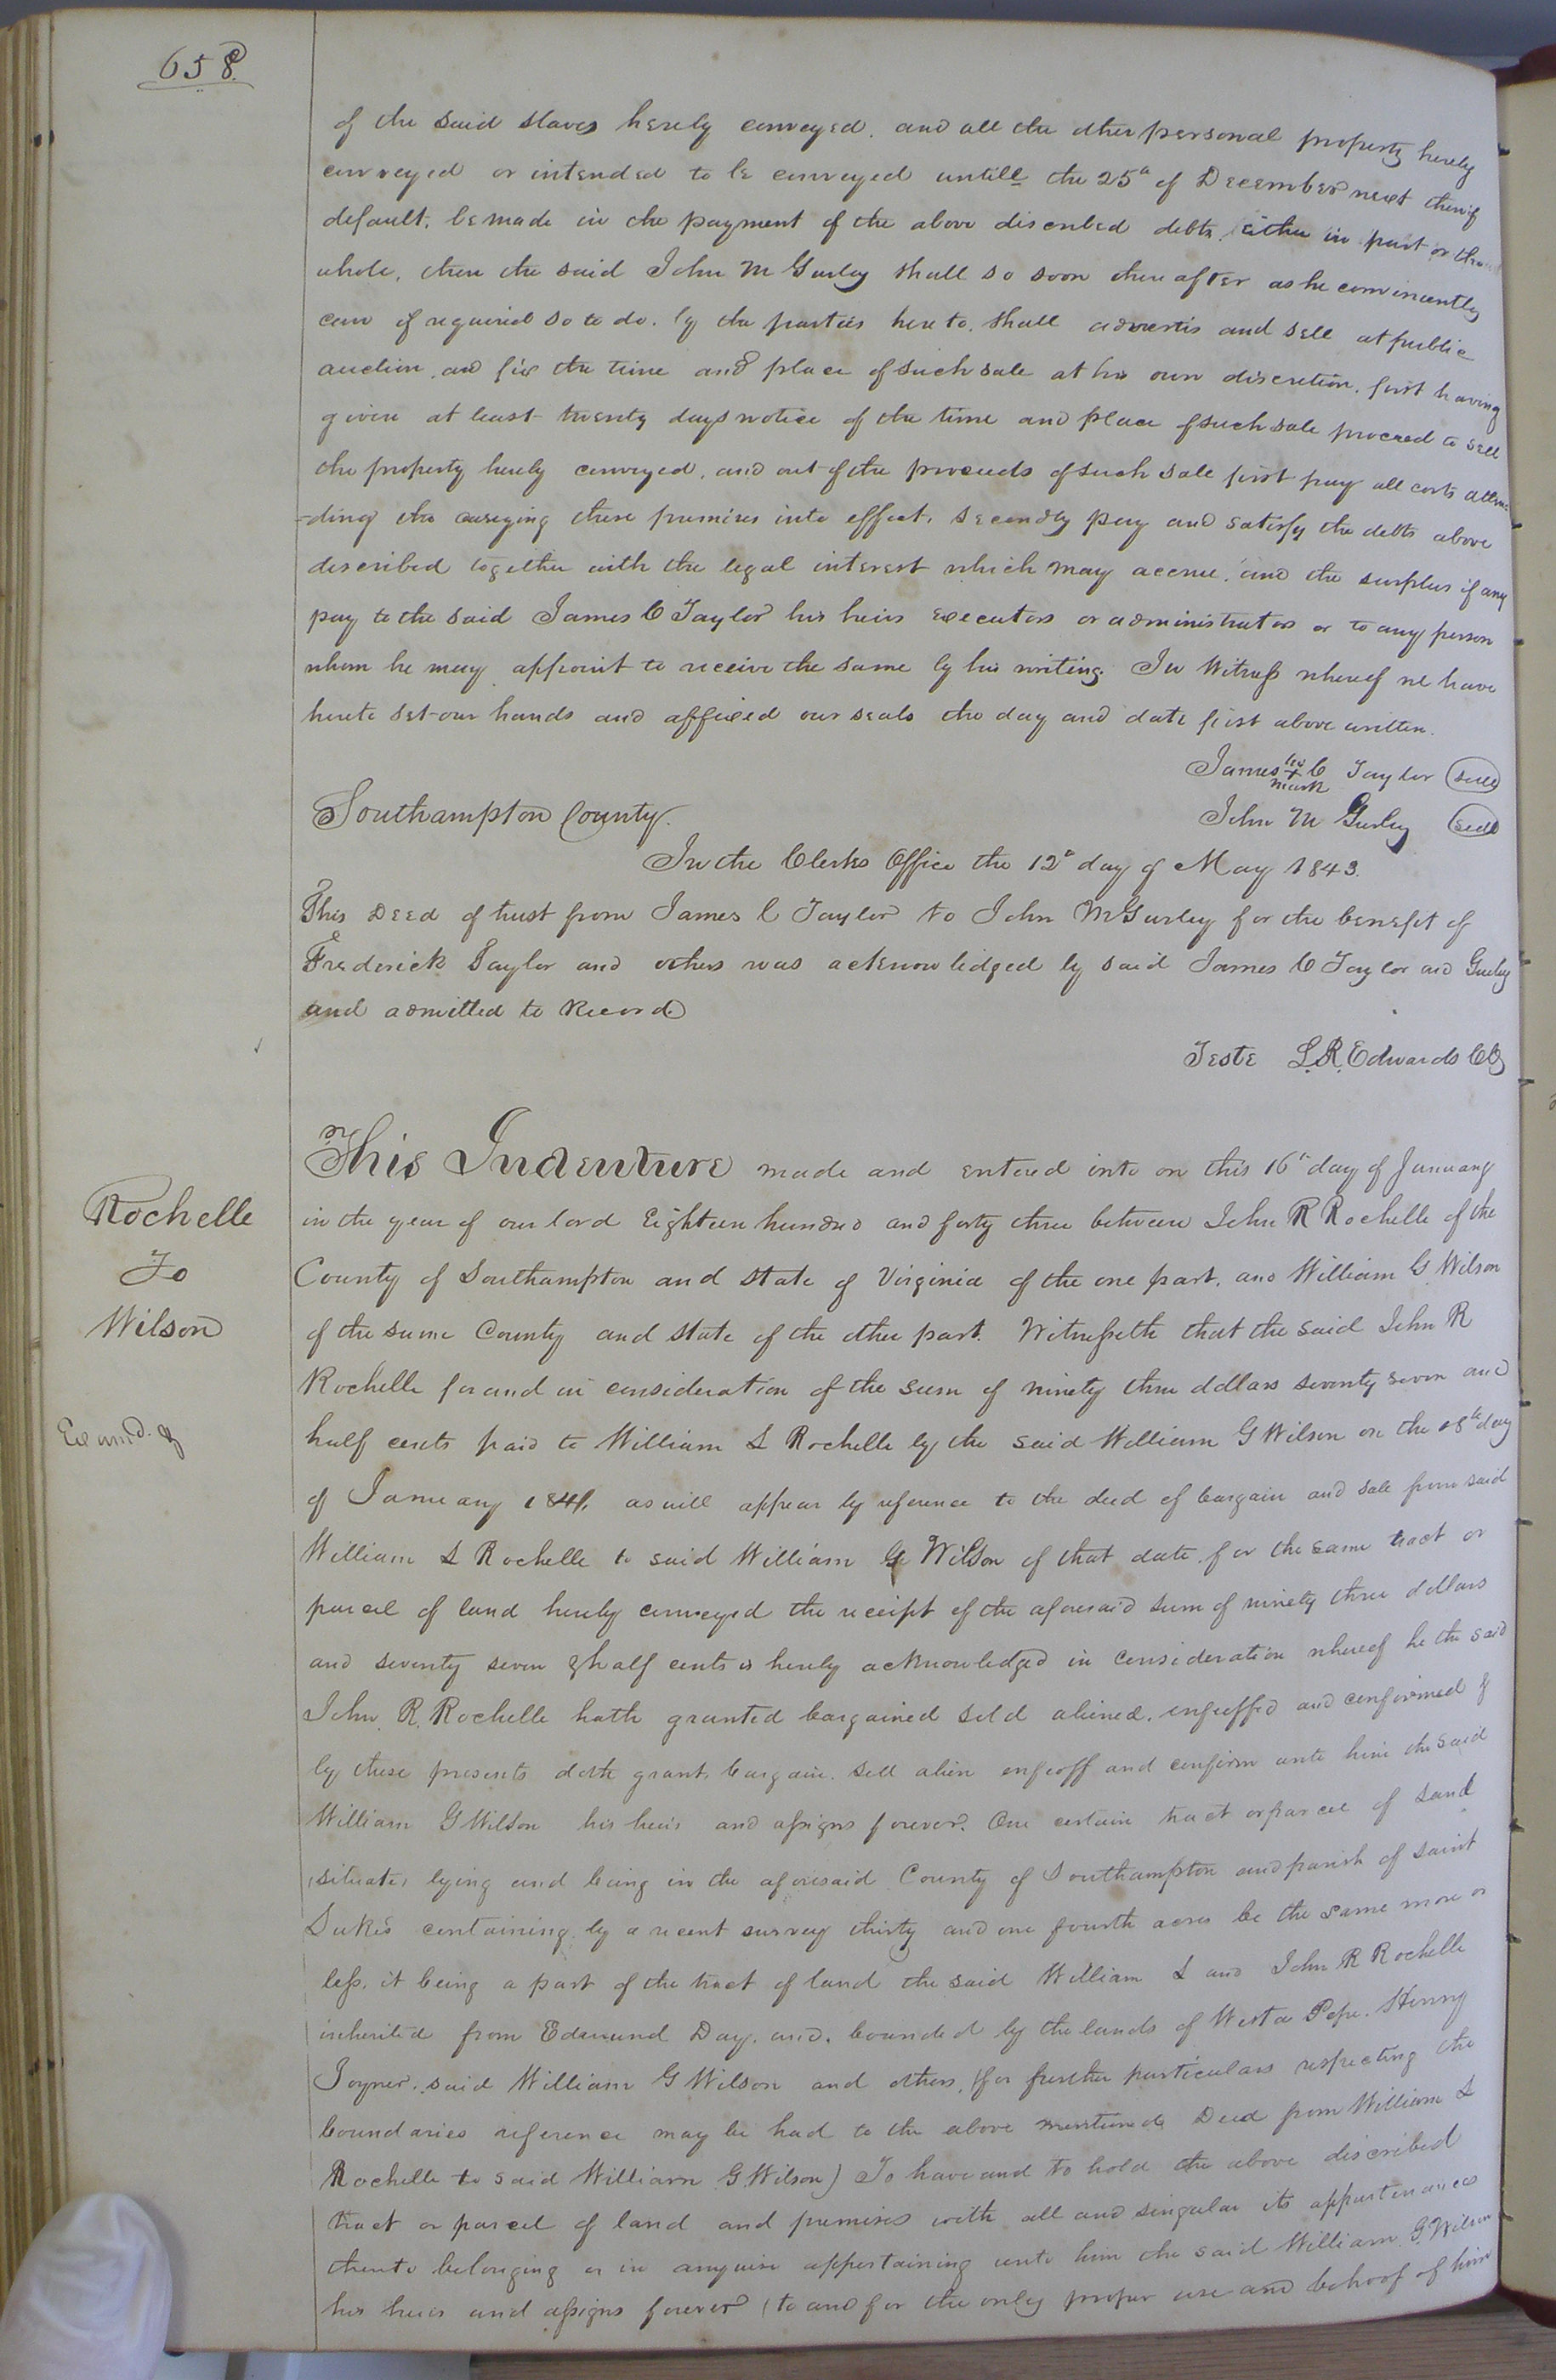 658
of the said slaves hereby conveyed, and all the other personal property hereby
conveyed or intended to be conveyed untill the 25th of December next then if
default, be made in the payment of the above discribed debts, either in part or the
whole, then the said John M Gurley shall so soon thereafter as he conveniently
can if required so to do, by the parties hereto, shall advertis and sell at public
auction, and fix the time and place of such sale at his own discretion, first having
given at least twenty days notice of the time and place of such sale proceed to sell
the property hereby conveyed, and out of the proceeds of such sale first pay all costs atten=
=ding the carrying these premises into effect, secondly pay and satisfy the debts above
described together with the legal interest which may accrue, and the surplus if any
pay to the said James C Taylor his heirs executors or administrators or to any person
whom he may appoint to receive the same by his writing. In Witness whereof we have
hereto set our hands and affixed our seals the day and date first above written.
James his + mark C Taylor seal
Southampton County.
John M Gurley seal
In the Clerks Office the 12th day of May 1843.
This Deed of trust from James C Taylor to John M Gurley for the benefit of
Frederick Taylor and others was acknowlidged by said James C Taylor and Gurley
and admitted to Record
Teste L.R. Edwards Clk
Rochelle
To
Wilson
Examd. &
This Indenture made and entered into on this 16th day of January
in the year of our lord Eighteen hundred and forty three between John R Rochelle of the
County of Southampton and State of Virginia of the one part, and William G Wilson
of the same County and State of the other part. Witnesseth that the said John R
Rochelle for and in consideration of the sum of ninety three dollars seventy seven and
half cents paid to William L Rochelle by the said William G Wilson on the 18th day
of January 1841, as will appear by reference to the deed of bargain and sale from said
William L Rochelle to said William G Wilson of that date for the same tract or
parcel of land hereby conveyed the receipt of the aforesaid sum of ninety three dollars
and seventy seven & half cents is hereby acknowledged in consideration whereof he the said
John R. Rochelle hath granted bargained sold aliened, enfeoffed and confirmed &
by these presents doth grant, bargain, sell alien enfeoff and confirm unto him the said
William G Wilson his heirs and assigns forever. One certain tract or parcel of Land
situate, lying and being in the aforesaid County of Southampton and parish of Saint
Lukes containing by a recent survey thirty and one fourth acres be the same more or
less, it being a part of the tract of land the said William L and John R Rochelle
inherited from Edmund Day, and, bounded by the lands of West a Pope, Henry
Joyner, said William G Wilson and others, (for further particulars respecting the
boundaries reference may be had to the above mentioned Deed from William L
Rochelle to said William G. Wilson) To have and to hold the above discribed
tract or parcel of land and premises with all and singular its appurtenances
thereto belonging or in anywise appertaining unto him the said William G. Wilson
his heirs and assigns forever (to and for the only proper use and behoof of him